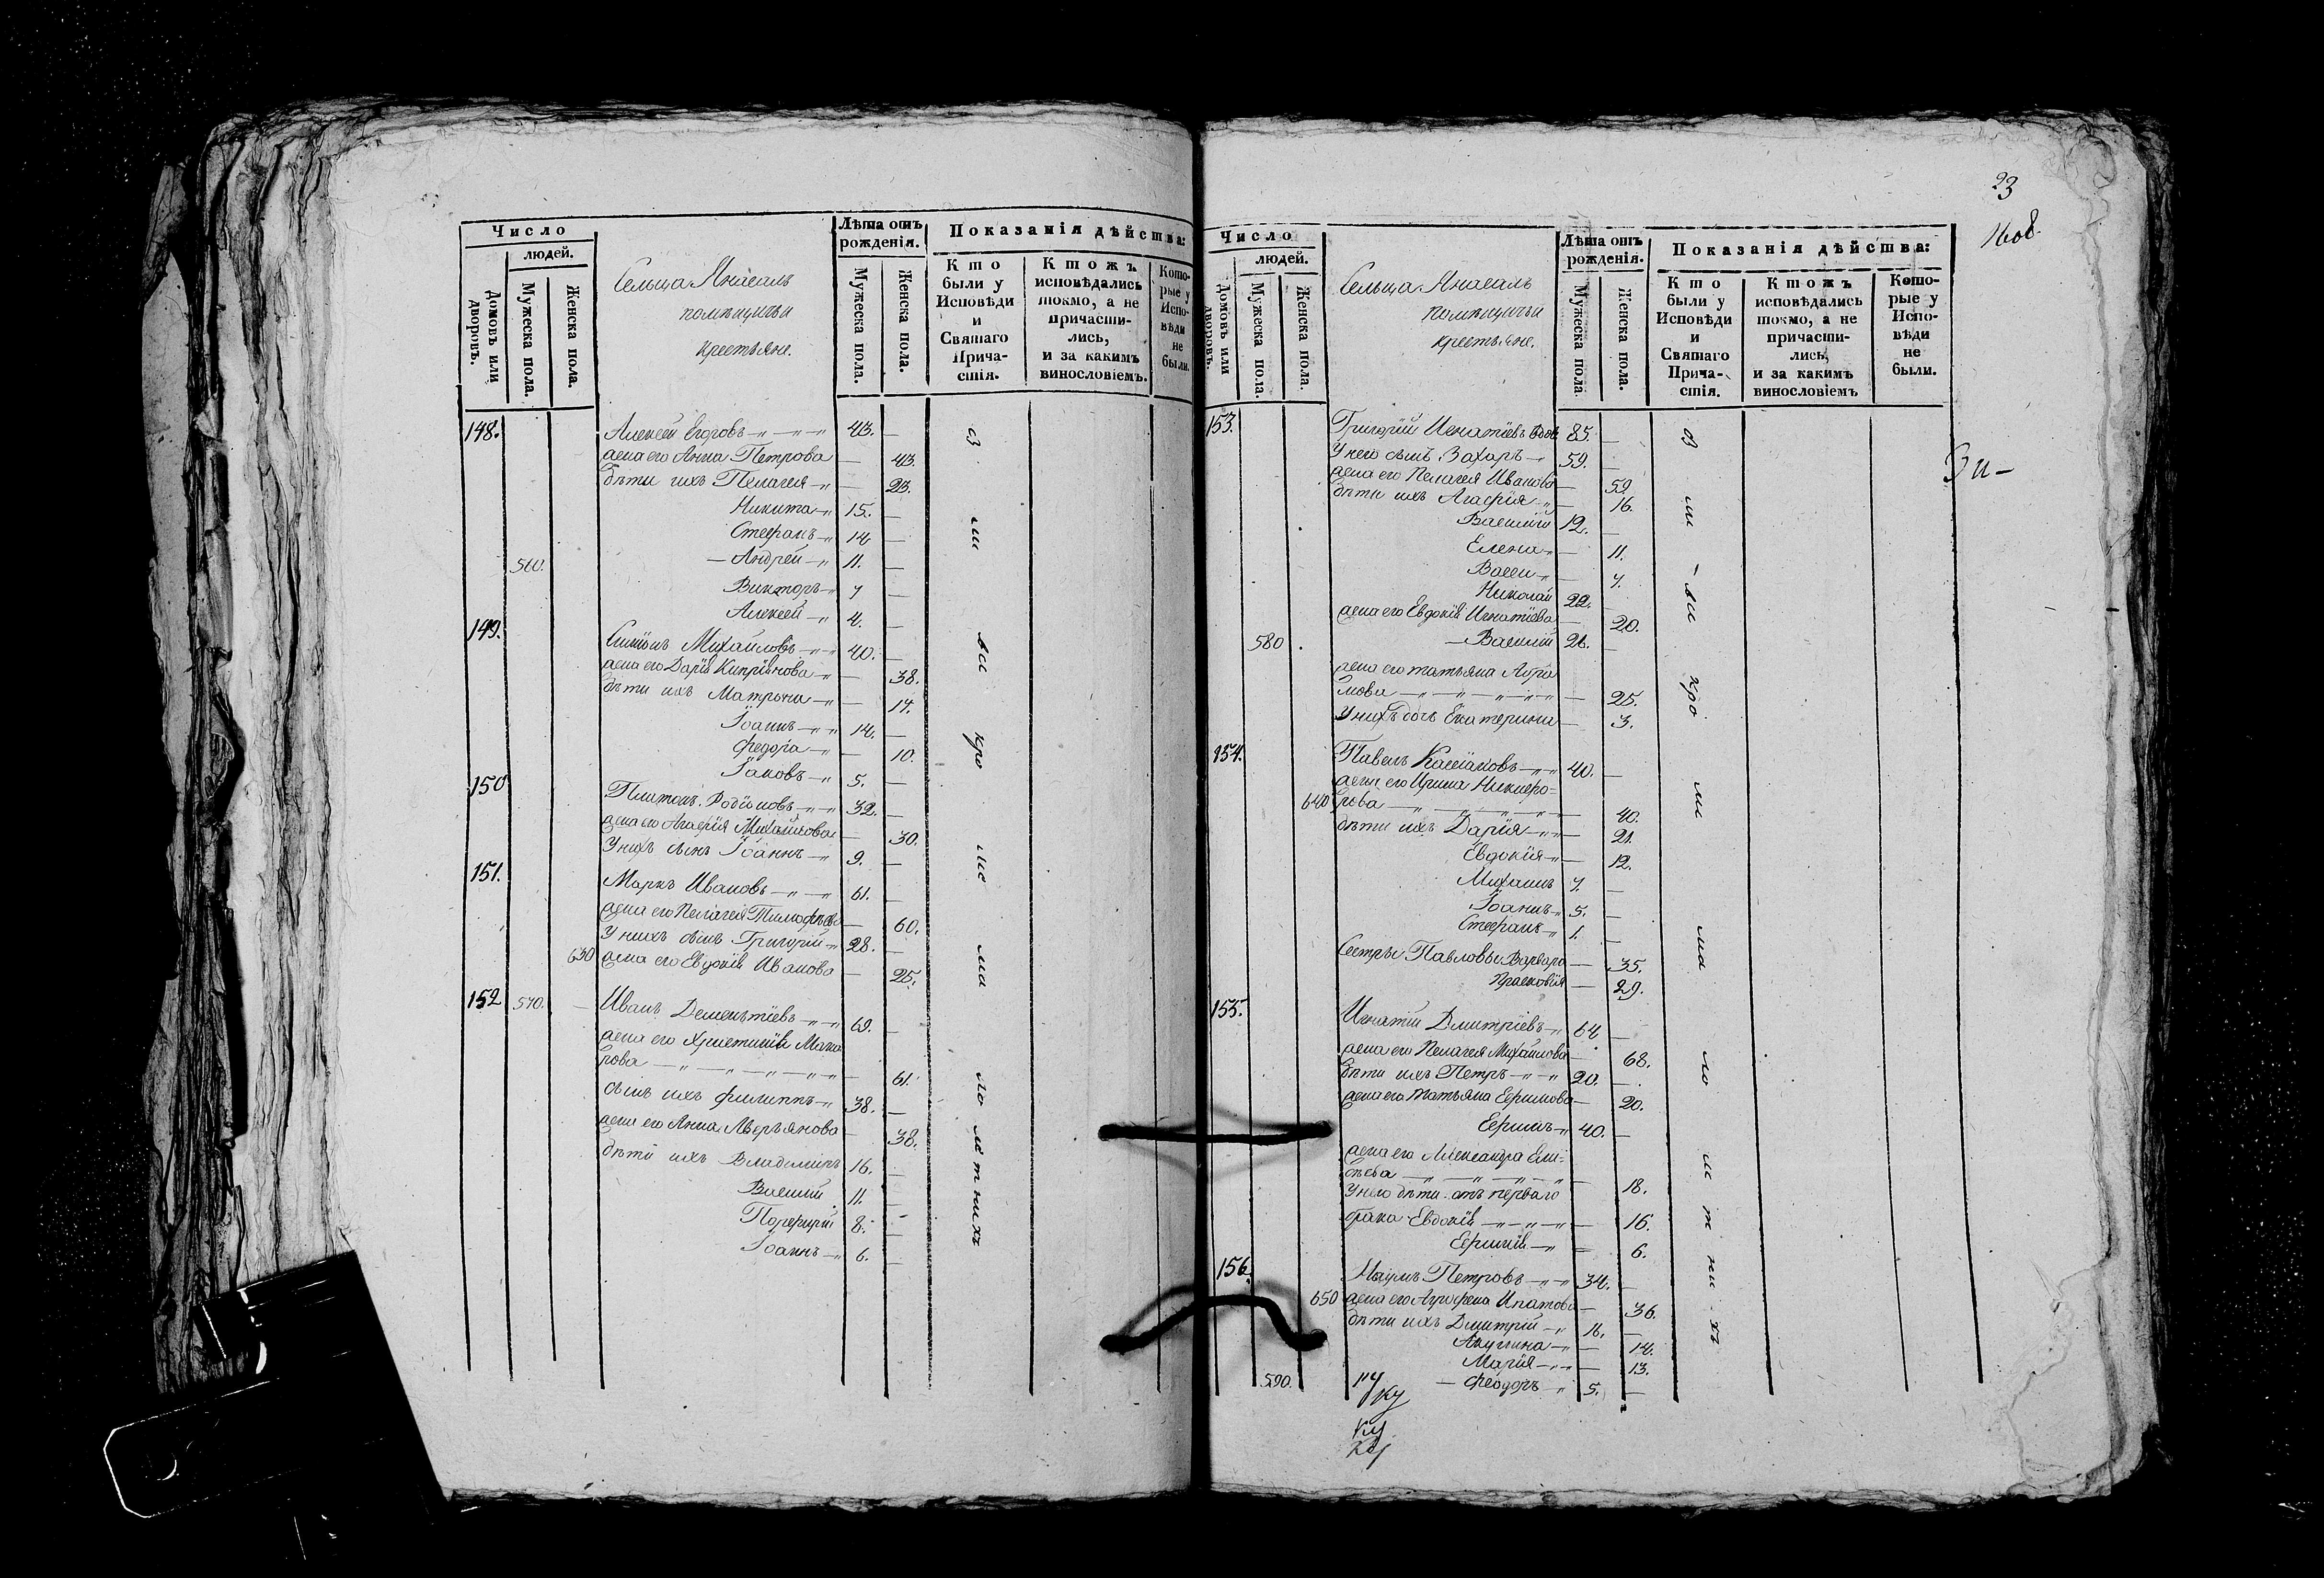 Число
людей.
Домовъ или дворовъ.
Мужеска пола.
Женска пола.
Сельца
помѣщичьи
крестьяне.
Лѣта отъ рожденія.
Мужеска пола.
Женска пола.
Показанія дѣйства:
Кто были у Исповѣди и Святаго Причастія.
Ктожъ исповѣдались токмо, а не причастились, и за какимъ винословіемъ.
Которые у Исповѣди не были.
148. Алексѣй Егоровъ 43.
жена его Анна Петрова 43.
дѣти ихъ Пелагея 23.
Никита 15.
Стефанъ 14
560. Андрей 11.
Викторъ 7
Алексѣй 4.
149. Симіонъ Михайловъ 40.
жена его Дарія Кипріянова 38.
дѣти ихъ Матрона 17.
Іоаннъ 14.
Федора 10.
Іаковъ 5.
150 Платонъ Родіоновъ 32.
жена его Агафія Михайлова 30.
У нихъ сынъ Іоаннъ 9.
151. Маркъ Ивановъ 61.
жена его Пелагея Тимофѣева 60.
У нихъ сынъ Григорій 28.
630 жена его Евдокія Иванова 25.
152 570. Иванъ Дементіевъ 69.
жена его Христинія Мака
рова 61.
сынъ ихъ Филиппъ 38.
жена его Анна Аверьянова 38.
дѣти ихъ Владимиръ 16.
Василій 11.
Порфирій 8.
Іоаннъ 6.
23
1608
Число
людей.
Домовъ или дворовъ.
Мужеска пола.
Женска пола.
Сельца
помѣщичьи
крестьяне.
Лѣта отъ рожденія.
Мужеска пола
Женска пола.
Показанія дѣйства:
Кто были у Исповѣди и Святаго Причастія.
Ктожъ исповѣдались токмо, а не причастились, и за какимъ винословіемъ
Которые у Исповѣди не были.
153. Григорій Игнатіевъ вдовъ 85.
У него сынъ Захаръ 59.
жена его Пелагея Иванова 59.
дѣти ихъ Агафія 16.
Василій 12.
Елена 11.
7.
Николай 22.
жена его Евдокія Игнатіева 20.
580 Василій 26.
жена его татьяна Абра
мова 25.
У нихъ дочь Екатерина 3.
154. Павелъ Касіановъ 40.
жена его Ирина Никифо=
640 рова 40.
дѣти ихъ Дарія 21.
Евдокія 12.
Михаилъ 7.
Іоаннъ 5.
Стефанъ 1.
Сестры Павловы Варвара 35.
Прасковія 29.
155. Игнатій Дмитріевъ 64
жена его Пелагея Михайлова 68.
дѣти ихъ Петръ 20.
жена его Татьяна Ефимова 20.
Ефимъ 40.
жена его Александра Ели=
сѣева 18.
У него дѣти отъ перваго
брака Евдокія 16.
Ефимія 6.
156. Наумъ Петровъ 34.
650 жена его Агрофена Ипатова 36.
дѣти ихъ Дмитрій 16.
Акулина 14.
Марія 13.
590. Феодоръ 5.